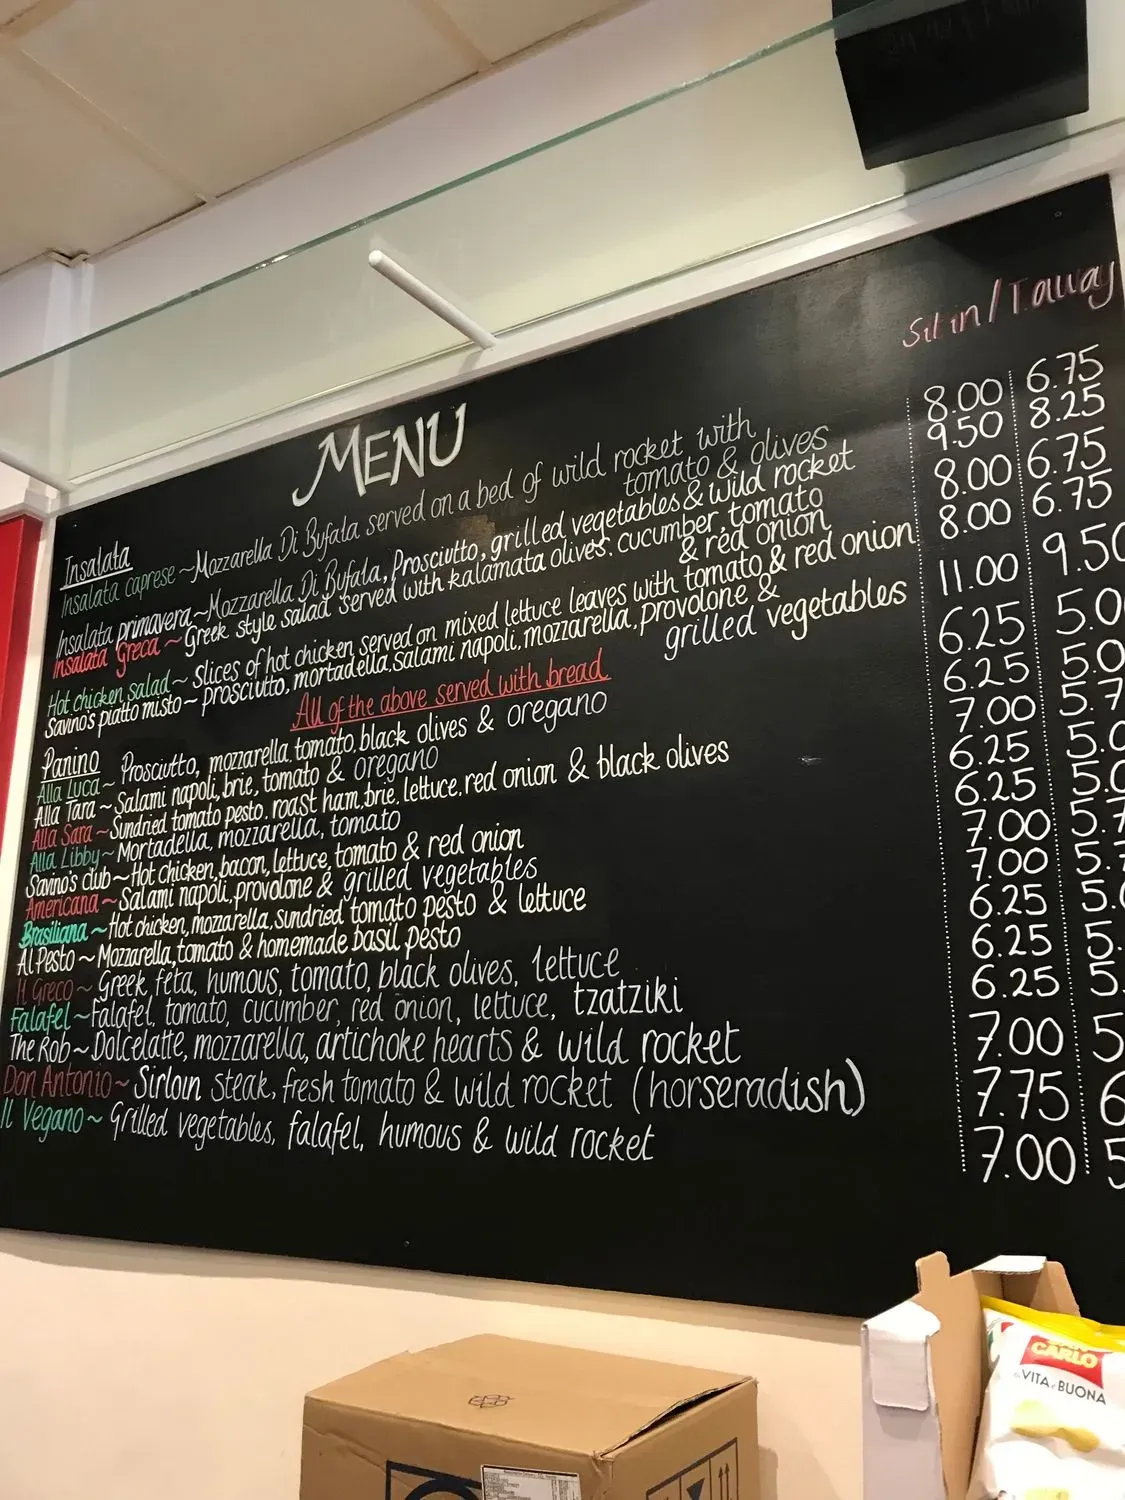 MENU
Sit in / T.away
Insalata
Insalata caprese ~ Mozzarella Di Bufala served on a bed of wild rocket with 8.00 6.75
tomato & olives
Insalata primavera ~ Mozzarella Di Bufala, Prosciutto, grilled vegetables & wild rocket 9.50 8.25
Insalata Greca ~ Greek style salad served with kalamata olives, cucumber, tomato 8.00 6.75
& red onion
Hot chicken salad ~ Slices of hot chicken served on mixed lettuce leaves with tomato & red onion 8.00 6.75
Savino's piatto misto ~ prosciutto, mortadella, salami napoli, mozzarella, provolone & 11.00 9.50
grilled vegetables
All of the above served with bread
Panino
Alla Luca ~ Prosciutto, mozzarella, tomato, black olives & oregano 6.25 5.0
Alla Tara ~ Salami napoli, brie, tomato & oregano 6.25 5.0
Alla Sara ~ Sundried tomato pesto, roast ham, brie, lettuce, red onion & black olives 7.00 5.7
Alla Libby ~ Mortadella, mozzarella, tomato 6.25 5.0
Savino's club ~ Hot chicken, bacon, lettuce, tomato & red onion 6.25 5.0
Americana ~ Salami napoli, provolone & grilled vegetables 7.00 5.7
Brasiliana ~ Hot chicken, mozzarella, sundried tomato pesto & lettuce 7.00 5.7
Al Pesto ~ Mozzarella, tomato & homemade basil pesto 6.25 5.0
Il Greco ~ Greek feta, humous, tomato, black olives, lettuce 6.25 5.
Falafel ~ Falafel, tomato, cucumber, red onion, lettuce, tzatziki 6.25 5.
The Rob ~ Dolcelatte, mozzarella, artichoke hearts & wild rocket 7.00 5
Don Antonio ~ Sirloin steak, fresh tomato & wild rocket (horseradish) 7.75 6
Il Vegano ~ Grilled vegetables, falafel, humous & wild rocket 7.00 5
CARLO
VITA BUONA